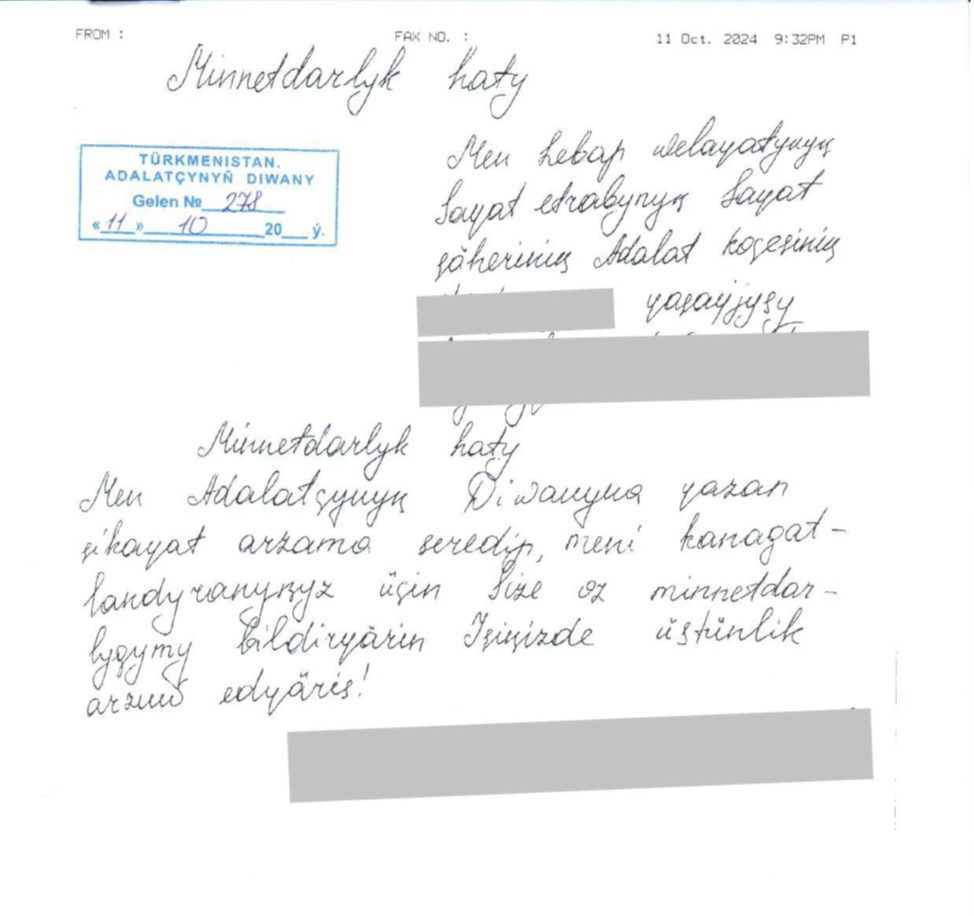 FROM :
FAX NO. :
11 Oct. 2024 9:32PM P1
Minnetdarlyk haty
TÜRKMENISTAN.
ADALATÇYNYŇ DIWANY
Gelen № 278
«11» 10 20 ý.
Men Lebap welayatynyň
Sayat etrabynyň Sayat
şäheriniň Adalat koçesiniň
yaşaýjyşy
Minnetdarlyk haty
Men Adalatçynyň Diwanyna yazan
şikayat arzama seredip, meni kanagat-
landyranyňyz üçin Size oz minnetdar-
lygymy bildiryärin Işiňizde üstünlik
arzuw edyäris!